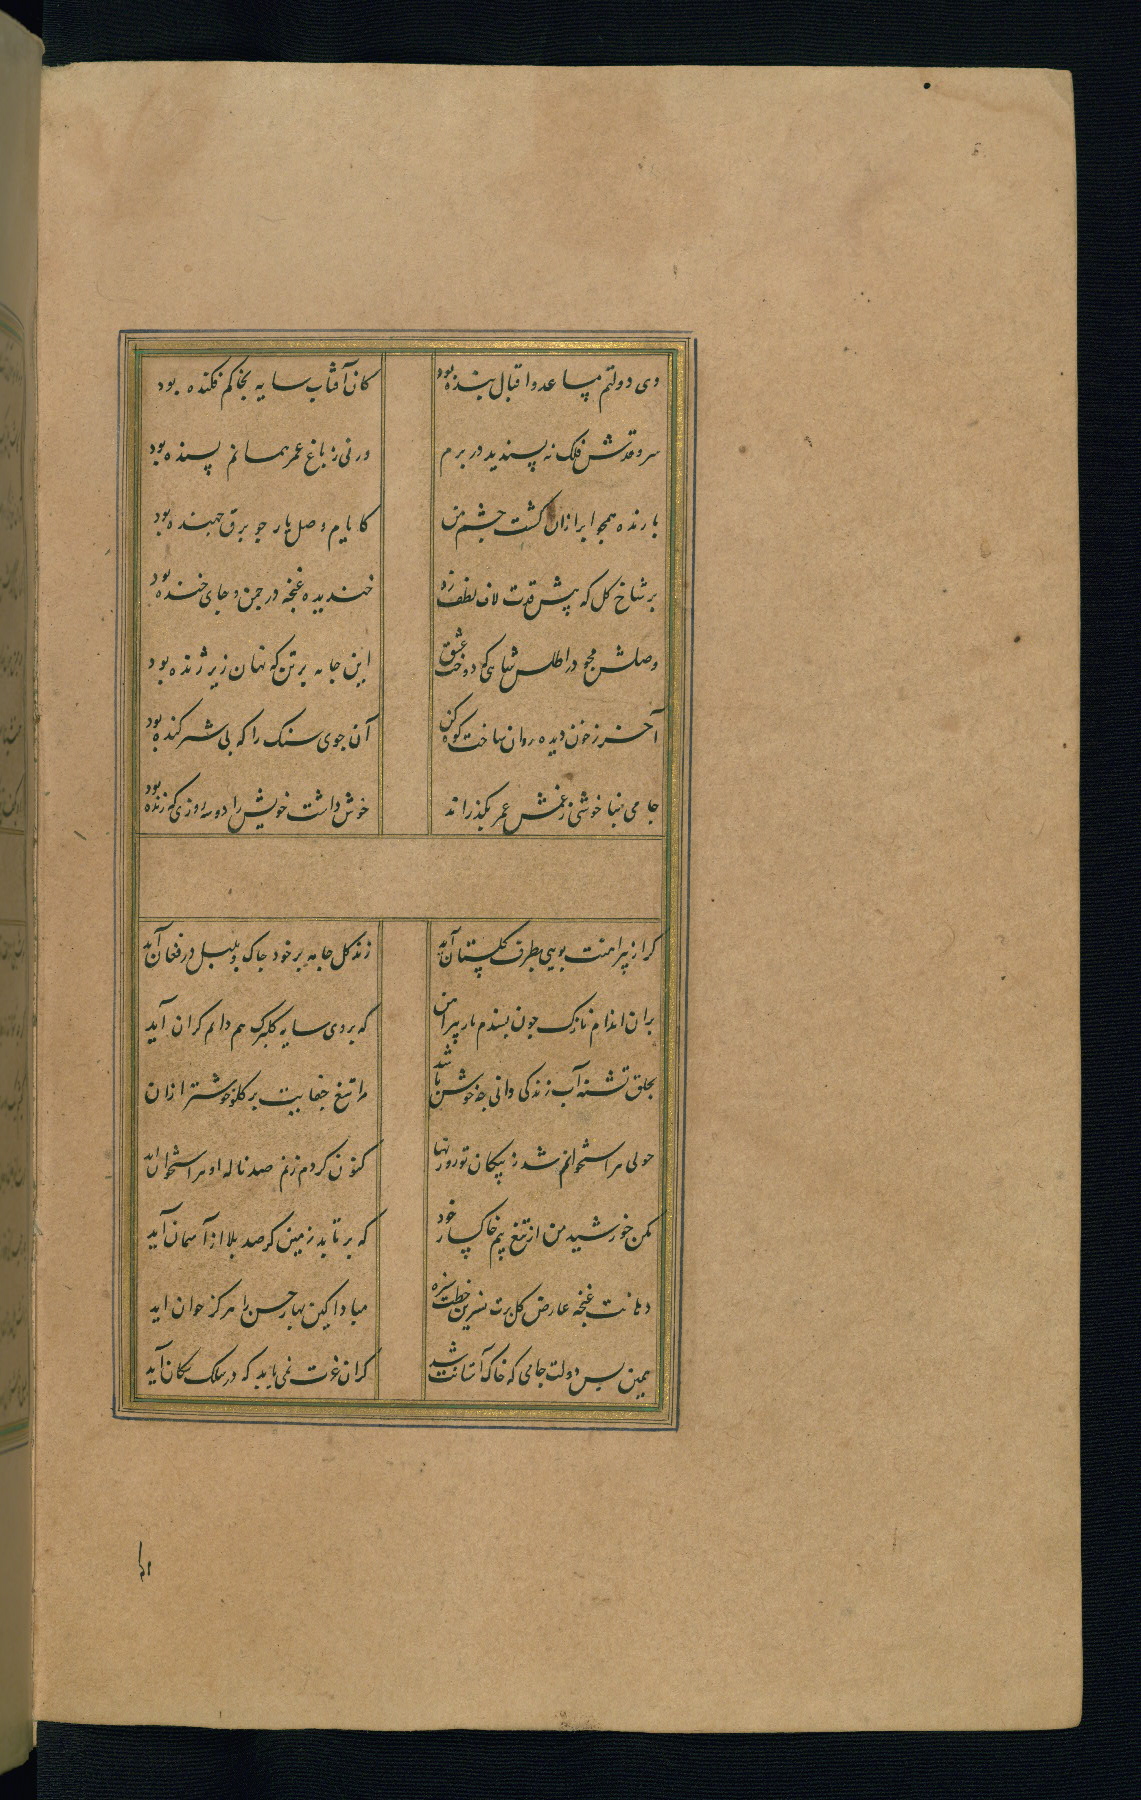 دی دولتم مساعد و اقبال بنده بود کان آفتاب سایه بخاکم فکنده بود
سرو قدش فلک نه پسندید در برم ورنی ز باغ عمر همانم پسنده بود
بارنده همچو ابر ازان کشت چشم من کایام وصل یار چو برق جهنده بود
بر شاخ کل که پیش قدت لاف لطف زد خندیده غنچه در چمن و جای خنده بود
وصلش مجو در اطلس شاهی که دوخت عشق این جامه بر تن که نهان زیر ژنده بود
آخر ز خون دیده روان ساخت کوه کن آن جوی سنک را که بی شیر کنده بود
جامی بناخوشی ز غمش عمر بکذراند خوش داشت خویش را دو سه روزی که زنده بود
کر از پیراهنت بویی بطرف کلستان آید زند کل جامه بر خود چاک و بلبل در فغان آید
بران اندام نازک چون پسندم بار پیراهن که بروی سایه کلبرک هم دانم کران آید
بحلق تشنه آب زندکی دانی چه خوش باشد مرا تیغ جفایت بر کلو خوشتر ازان
هر استخوانم شد ز پیکان تو روزنها کنون کردم زنم صد ناله او هر استخوان اید
مکن خورشید من از تیغ بیم خاکسار خود که بر تابد زمین کر صد بلا از آسمان آید
دهانت غنچه عارض کل برت نسرین خطت سبزه مبادا کین بهار حسن را هرکز خزان اید
همین بس دولت جامی که خاک آستانت شد کر ان عزت نمی یابد که در سلک سکان آید